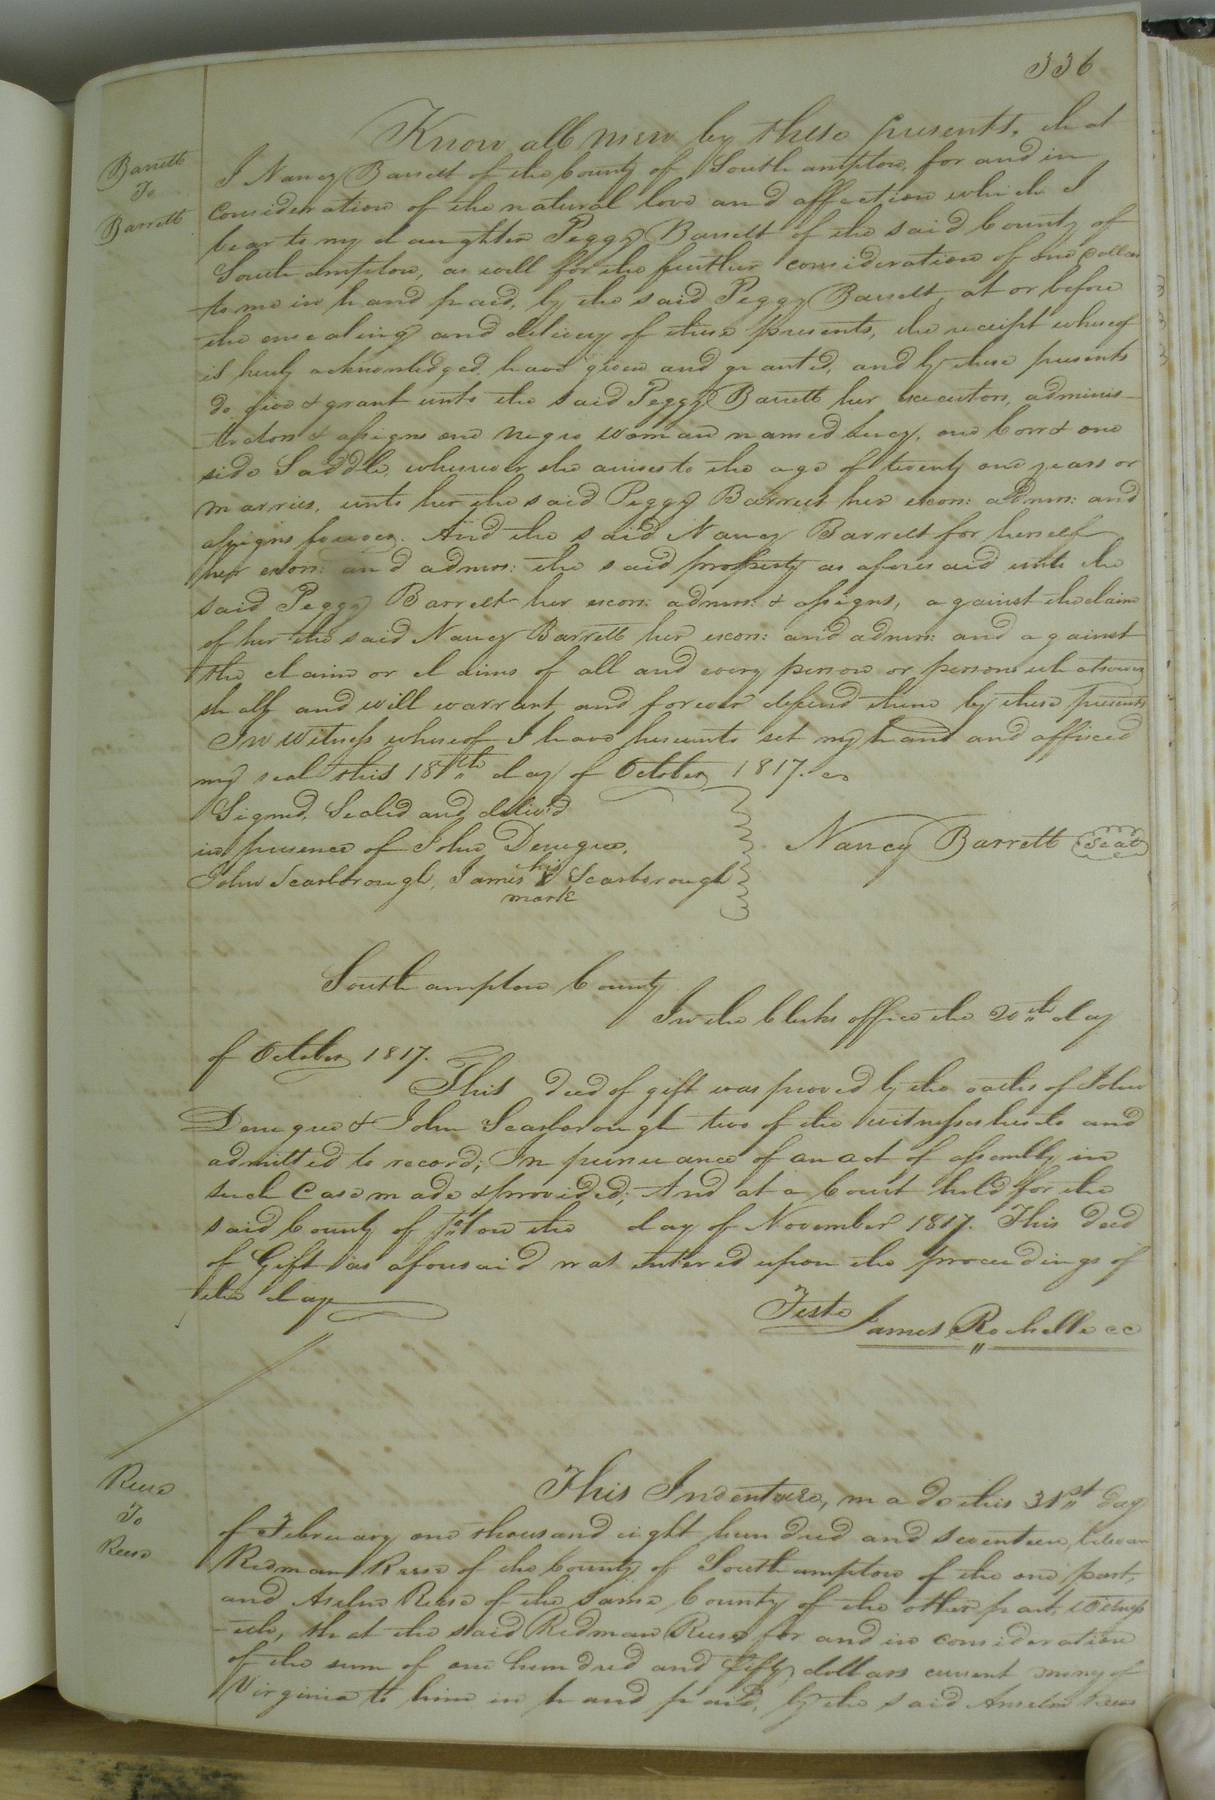 336
Barrett
To
Barrett
Know all men by these presents, that
I Nancy Barrett of the County of Southampton, for and in
consideration of the natural love and affection which I
bear to my daughter Peggy Barrett of the said County of
Southampton, as well for the further consideration of one dollar
to me in hand paid, by the said Peggy Barrett, at or before
the ensealing and delivery of these presents, the receipt whereof
is herby acknowledged, have given and granted, and by these presents
do give & grant unto the said Peggy Barrett her executors, adminis-
-trators & assigns one negro woman named Lucy, one Cow & one
side Saddle, whenever she arives to the age of twenty one years or
marries, unto her the said Peggy Barrett her exors: admrs: and
assigns forever. And the said Nancy Barrett for herself
her exors: and admrs: the said property as aforesaid unto the
said Peggy Barrett her exors: admrs: & assigns, against the claim
of her the said Nancy Barrett her exors: and admrs: and against
the claim or claims of all and every person or persons whatsoever
shall and will warrant and forever defend them by these presents
In Witness whereof I have hereunto set my hand and affixed
my seal this 18th day of October 1817.
Signed, Sealed and deliv'd
in presence of John Denegre,
John Scarborough, James his X Scarborough
mark
Nancy Barrett Seal
Southampton County
In the Clerks office the 20th day
of October 1817.
This deed of gift was proved by the oaths of John
Denegre & John Scarborough two of the witnesses hereto and
admitted to record; In pursuance of an act of assembly in
such Case made & provided; And at a Court held for the
said County of on the day of November 1817. This deed
of Gift as aforesaid was entered upon the proceedings of
the day
Teste
James Rochelle cc
Reese
To
Reese
This Indenture, made this 31st day
of February one thousand eight hundred and seventeen, between
Redman Reese of the County of Southampton of the one part,
and Anselm Reese of the same County of the other part, Witness-
-eth, that the said Redman Reese for and in consideration
of the sum of one hundred and fifty dollars current money of
Virginia to him in hand paid, by the said Anselm Reese